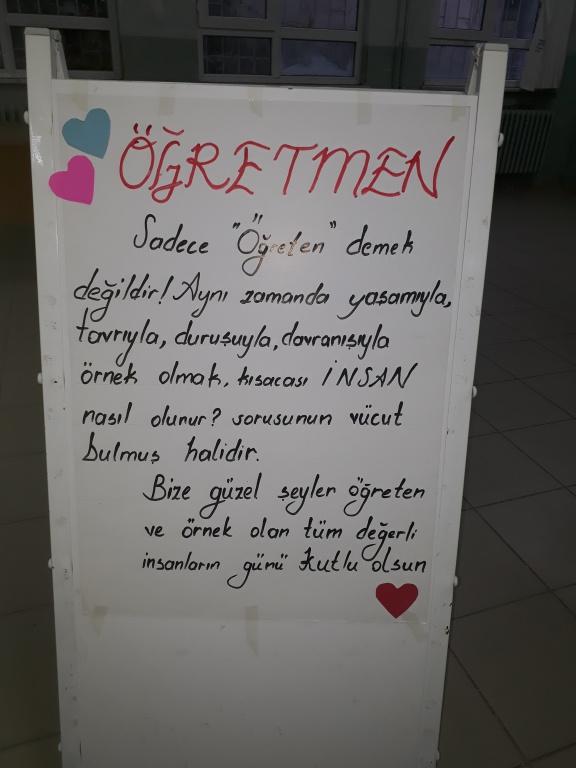 ÖĞRETMEN
Sadece "Öğreten" demek
değildir! Aynı zamanda yaşamıyla,
tavrıyla, duruşuyla, davranışıyla
örnek olmak, kısacası İNSAN
nasıl olunur? sorusunun vücut
bulmuş halidir.
Bize güzel şeyler öğreten
ve örnek olan tüm değerli
insanların günü kutlu olsun